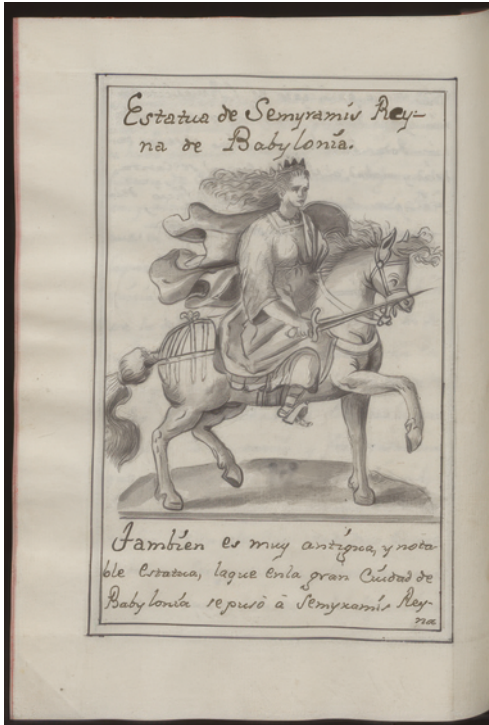 Estatua de Semyramis Rey-
na de Babylonia.
Tambien es muy antigua, y nota-
ble estatua, la que en la gran Ciudad de
Babylonia se pusò à Semyramis Rey-
na